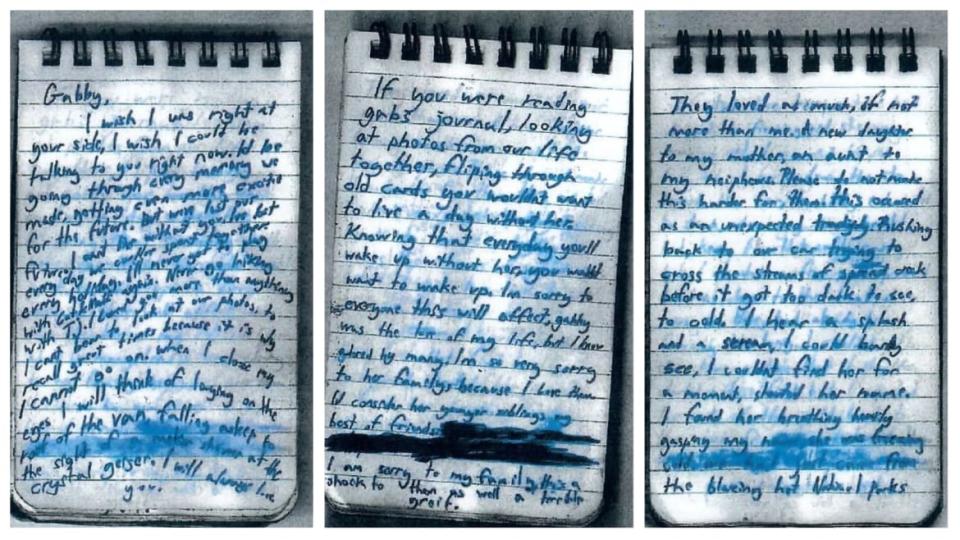 Gabby,
I wish I was right at
your side, I wish I could be
talking to you right now. I'd be
going through every memory we
made, getting even more excited
for the future. But we've lost our
future. I can't live without you. I've lost
every day we could've spent together
every holiday. I'll never get to play
with again. Never go hiking
with TJ. I loved you more than anything
I can't bear to look at our photos, to
recall great times because it is why
I cannot go on. When I close my
eyes I will think of laughing on the
roof of the van, falling asleep to
the sight of at the
crystal geiser. I will always love
you.
If you were reading
gabs journal, looking
at photos from our life
together, fliping through
old cards you wouldn't want
to live a day without her.
Knowing that everyday you'll
wake up without her, you wouldn't
want to wake up. I'm sorry to
everyone this will affect, gabby
was the love of my life, but I know
adored by many. I'm so very sorry
to her family because I love them.
I'd consider her younger siblings my
best of friends
I am sorry to my family, this is a
shock to them as well a terrible
greif.
They loved as much, if not
more than me. A new daughter
to my mother, an aunt to
my nephews. Please do not make
this harder for them, this occured
as an unexpected tradgedy. Rushing
back to our car trying to
cross the streams of spread creek
before it got too dark to see,
to cold. I hear a splash
and a scream. I could barely
see, I couldn't find her for
a moment, shouted her name.
I found her breathing heavily
gasping my she was freezing
cold from
the blazing hot National Parks